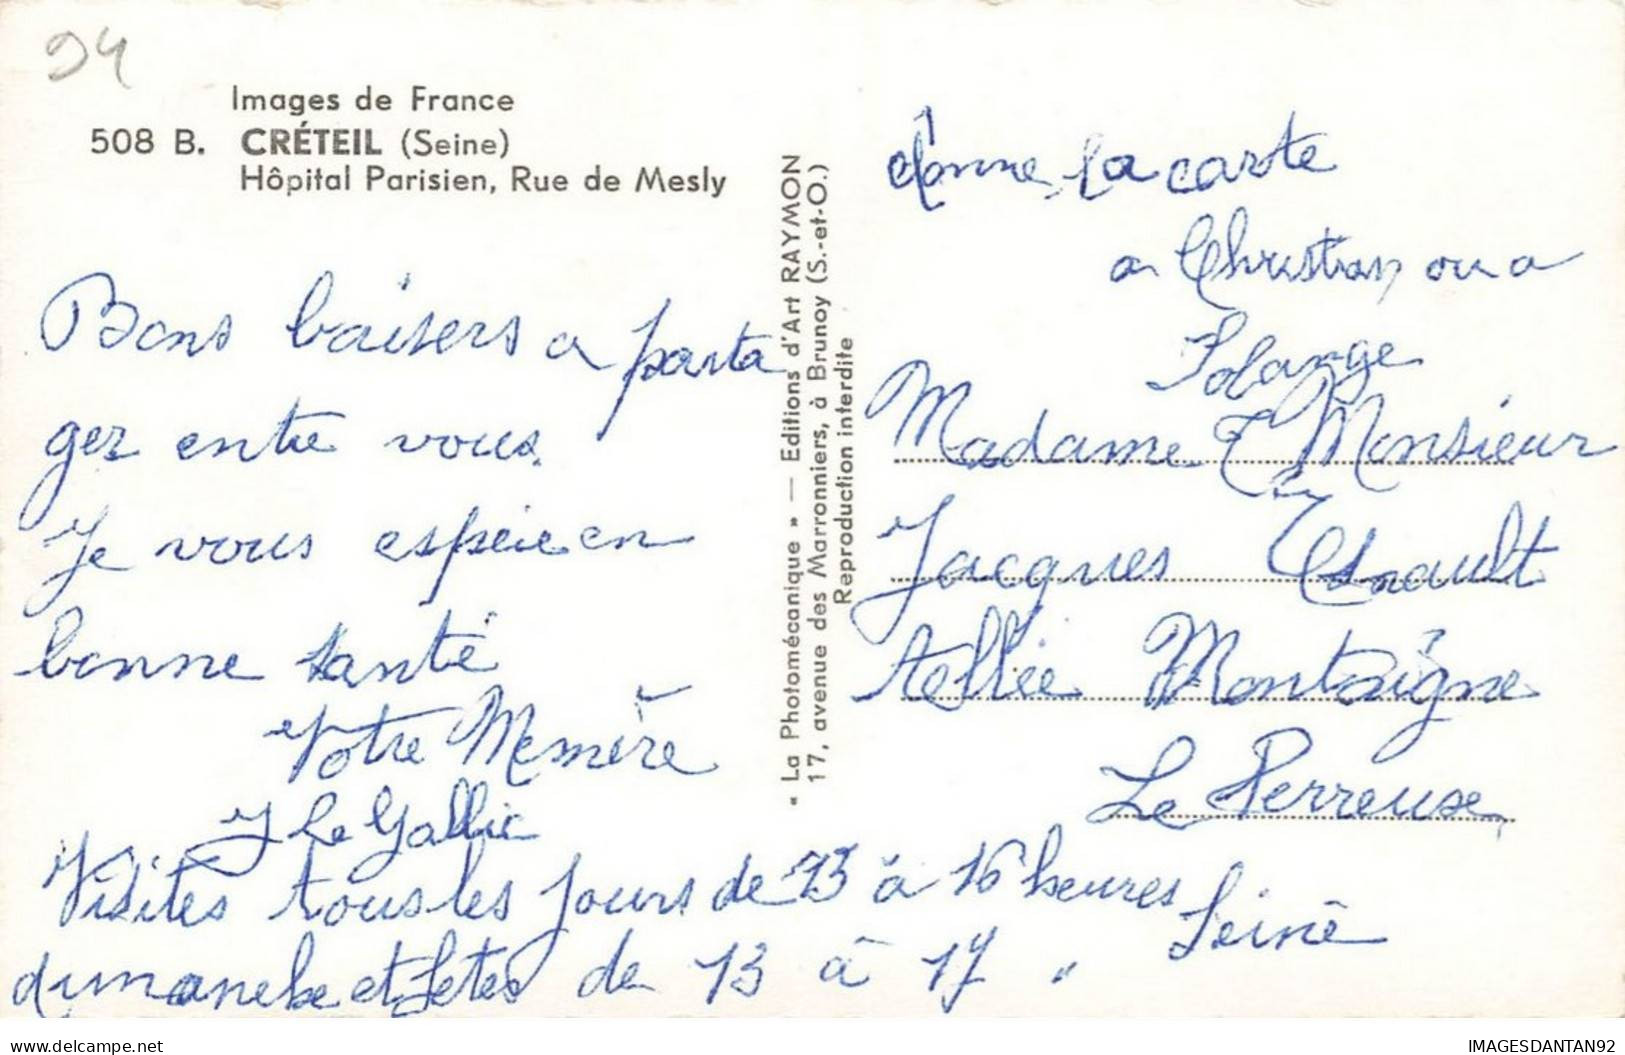 94
Images de France
508 B. CRÉTEIL (Seine)
Hôpital Parisien, Rue de Mesly
Bons baisers a parta
ger entre vous.
Je vous espère en
bonne santé
Votre Mémère
J Le Gallic
Visites tous les jours de 13 à 16 heures
dimanche et fetes de 13 à 17 "
« La Photomécanique » — Editions d'Art RAYMON
17, avenue des Marronniers, à Brunoy (S.-et-O.)
Reproduction interdite
donne la carte
a Christian ou a
Solange
Madame Et Monsieur
Jacques Esnault
Allée Montaigne
Le Perreuse
Seine
www.delcampe.net
IMAGESDANTAN92